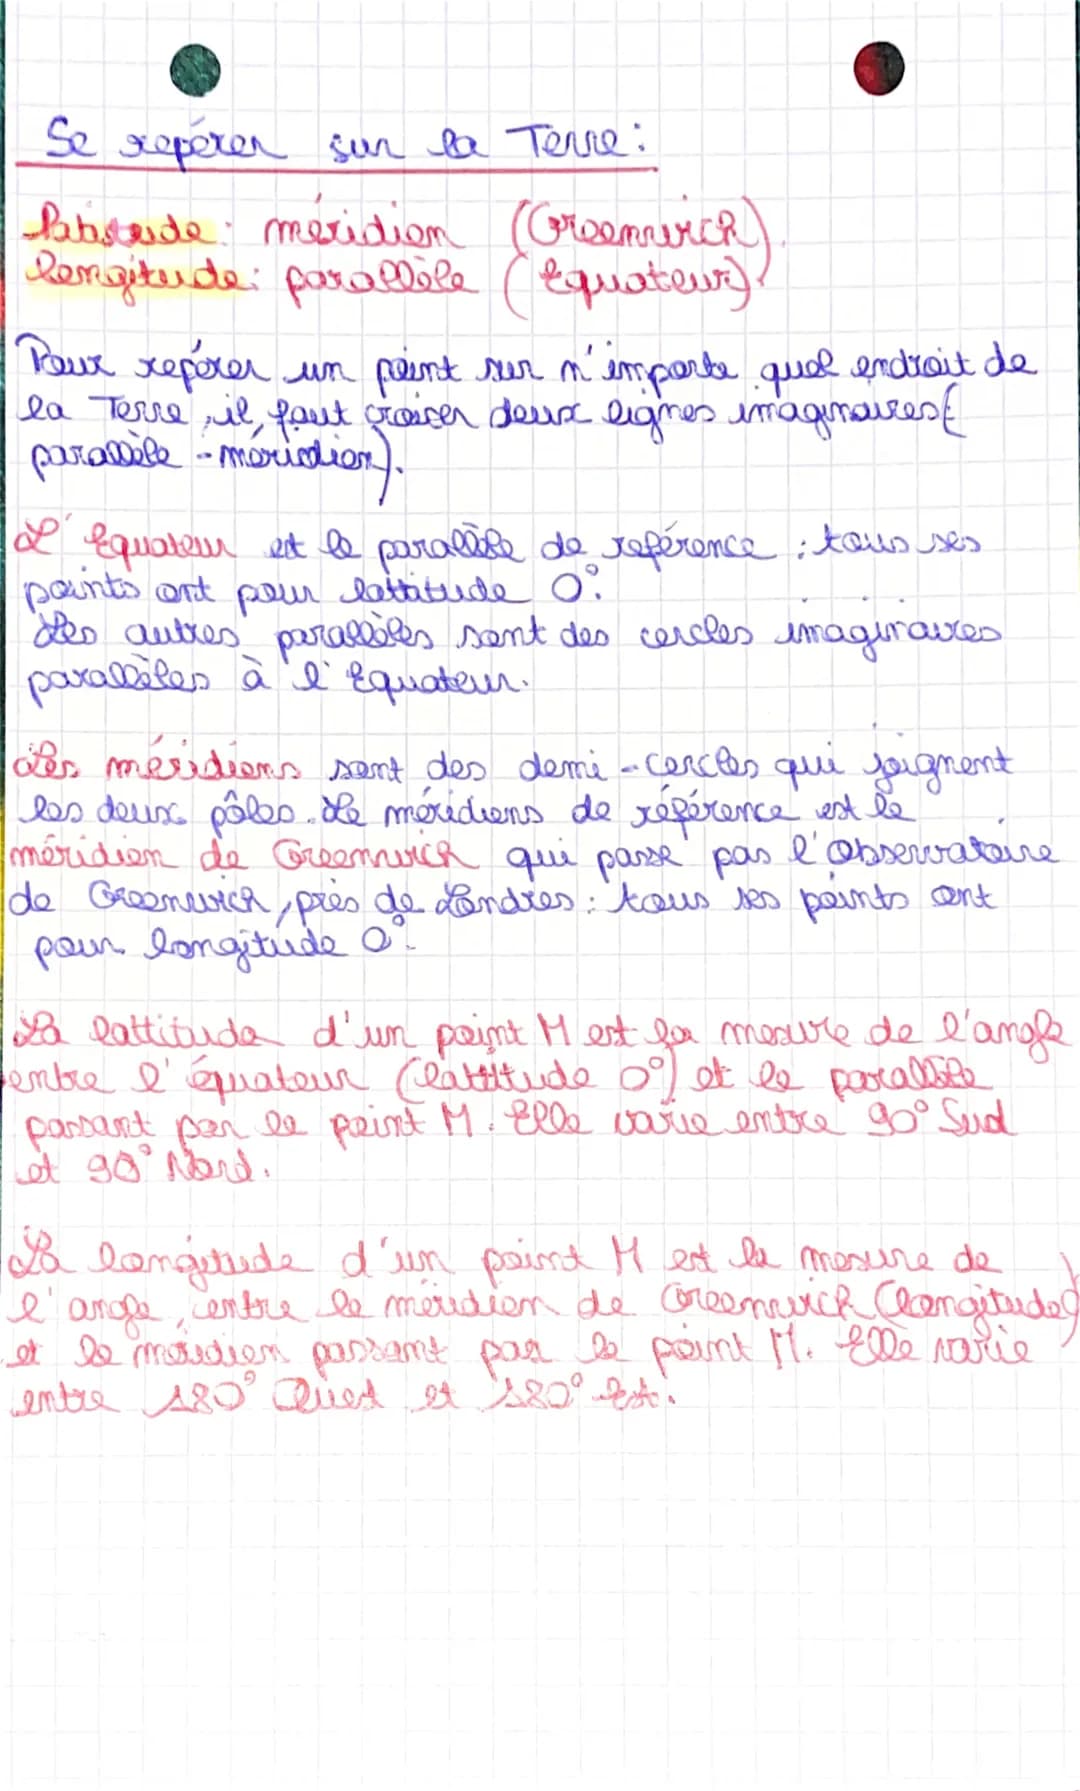 Se repérer sur la Terre :
latitude : méridien (Greenwich)
longitude : parallèle (Equateur).
Pour repérer un point sur n'importe quel endroit de
la Terre, il faut croiser deux lignes imaginaires (
parallèle - méridien).
L'Equateur est le parallèle de reférence : tous ses
points ont pour lattitude 0°.
Les autres parallèles sont des cercles imaginaires
parallèles à l'Equateur.
Les méridiens sont des demi-cercles qui joignent
les deux pôles. Le méridiens de référence est le
méridien de Greenwich qui passe pas l'Observatoire
de Greenwich, près de Londres : tous ses points ont
pour longitude 0°.
La lattitude d'un point M est la mesure de l'angle
entre l'équateur (lattitude 0°) et le parallèle
passant par le point M. Elle varie entre 90° Sud
et 90° Nord.
La longitude d'un point M est la mesure de
l'angle entre le méridien de Greenwich (longitude 0°)
et le méridien passant par le point M. Elle varie
entre 180° Ouest et 180° Est.